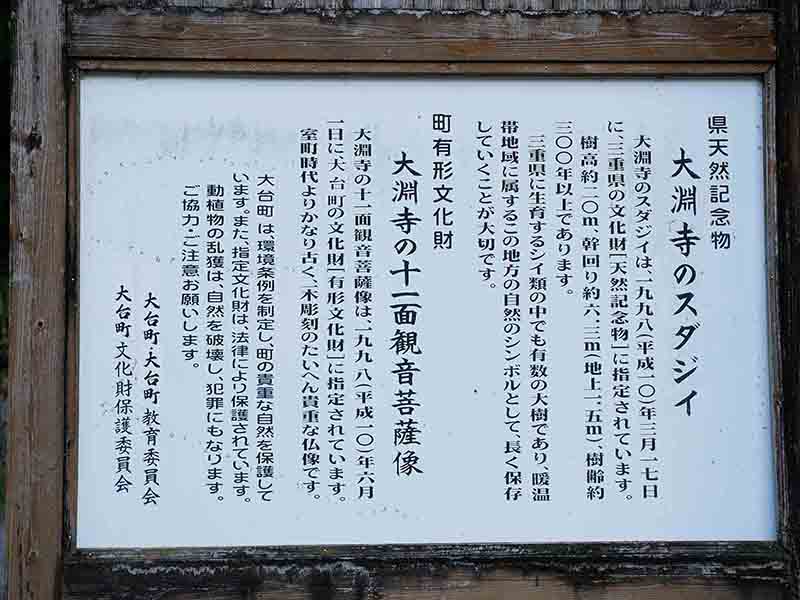 県天然記念物
大淵寺のスダジイ
大淵寺のスダジイは、一九九八(平成一〇)年三月一七日
に、三重県の文化財[天然記念物]に指定されています。
樹高約二〇m、幹回り約六・三m(地上一・五m)、樹齢約
三〇〇年以上であります。
三重県に生育するシイ類の中でも有数の大樹であり、暖温
帯地域に属するこの地方の自然のシンボルとして、長く保存
していくことが大切です。
町有形文化財
大淵寺の十一面観音菩薩像
大淵寺の十一面観音菩薩像は、一九九八(平成一〇)年六月
一日に大台町の文化財[有形文化財]に指定されています。
室町時代よりかなり古く、一木彫刻のたいへん貴重な仏像です。
大台町は、環境条例を制定し、町の貴重な自然を保護して
います。また、指定文化財は、法律により保護されています。
動植物の乱獲は、自然を破壊し、犯罪にもなります。
ご協力・ご注意お願いします。
大台町・大台町教育委員会
大台町文化財保護委員会